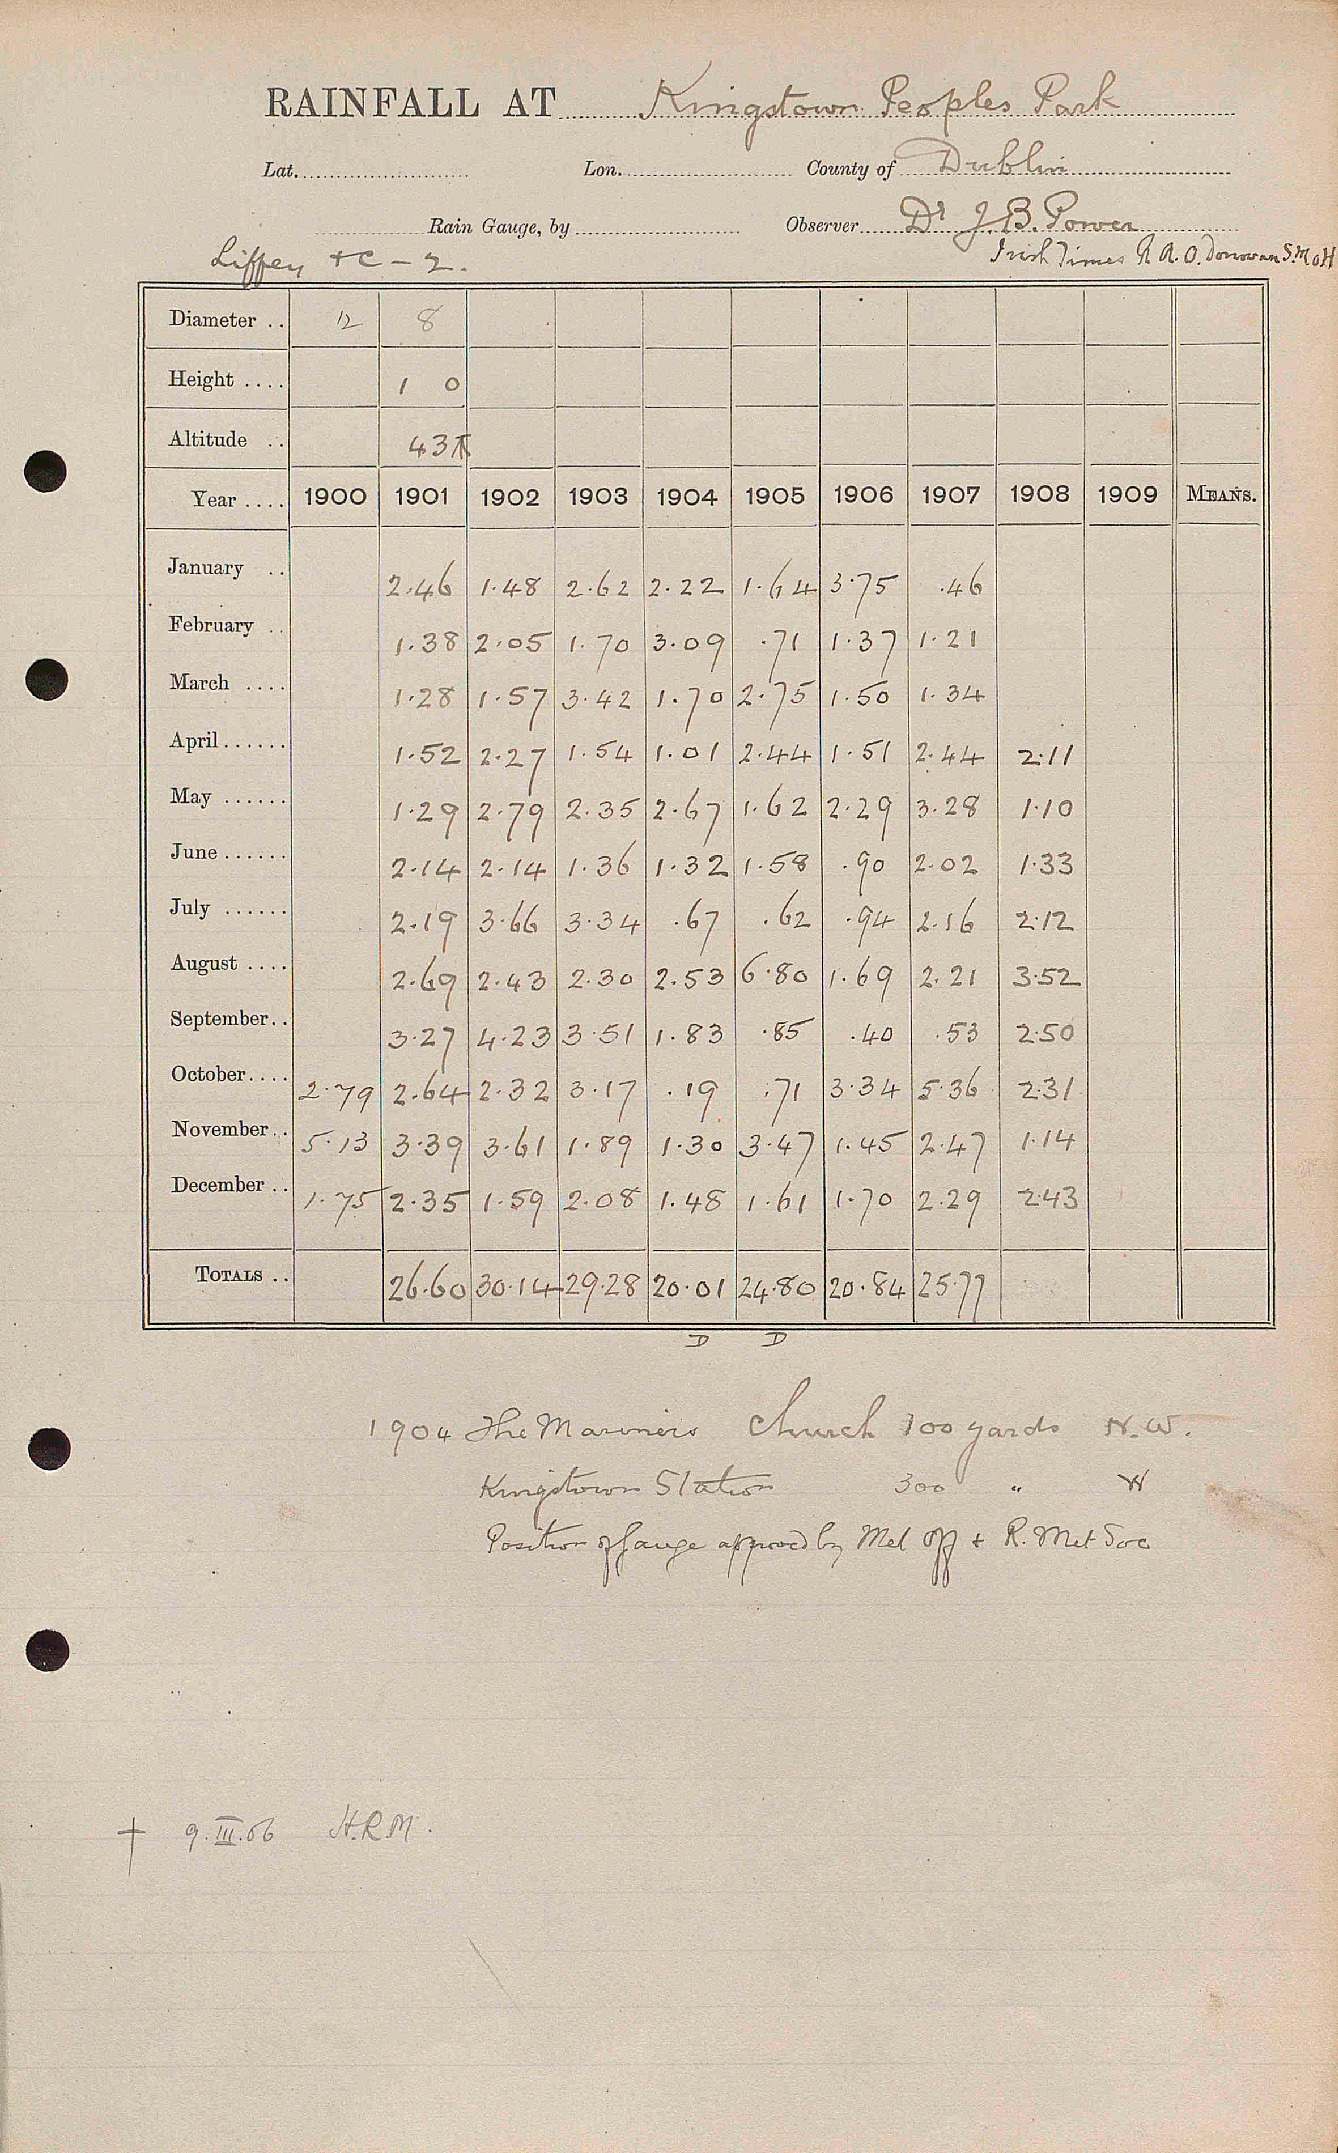 RAINFALL AT Kingstown Peoples Park
Lat. Lon. County of Dublin
Rain Gauge, by Observer Dr J. B. Power
Liffey &c - 2. Irish Times R A. O. Donovan S.M.oH
Diameter .. 12 8
Height .... 1 0
Altitude .. 43
Year .... 1900 1901 1902 1903 1904 1905 1906 1907 1908 1909 MEANS.
January .. 2.46 1.48 2.62 2.22 1.64 3.75 .46
February .. 1.38 2.05 1.70 3.09 .71 1.37 1.21
March .... 1.28 1.57 3.42 1.70 2.75 1.50 1.34
April...... 1.52 2.27 1.54 1.01 2.44 1.51 2.44 2.11
May ...... 1.29 2.79 2.35 2.67 1.62 2.29 3.28 1.10
June ...... 2.14 2.14 1.36 1.32 1.58 .90 2.02 1.33
July ...... 2.19 3.66 3.34 .67 .62 .94 2.16 2.12
August .... 2.69 2.43 2.30 2.53 6.80 1.69 2.21 3.52
September.. 3.27 4.23 3.51 1.83 .85 .40 .53 2.50
October.... 2.79 2.64 2.32 3.17 .19 .71 3.34 5.36 2.31
November .. 5.13 3.39 3.61 1.89 1.30 3.47 1.45 2.47 1.14
December .. 1.75 2.35 1.59 2.08 1.48 1.61 1.70 2.29 2.43
TOTALS .. 26.60 30.14 29.28 20.01 24.80 20.84 25.77
D D
1904 The Mariners Church 100 yards N.W.
Kingstown Station 300 " W
Position of Gauge approved by Met Off + R. Met Soc
† 9.III.06 H.R.M.